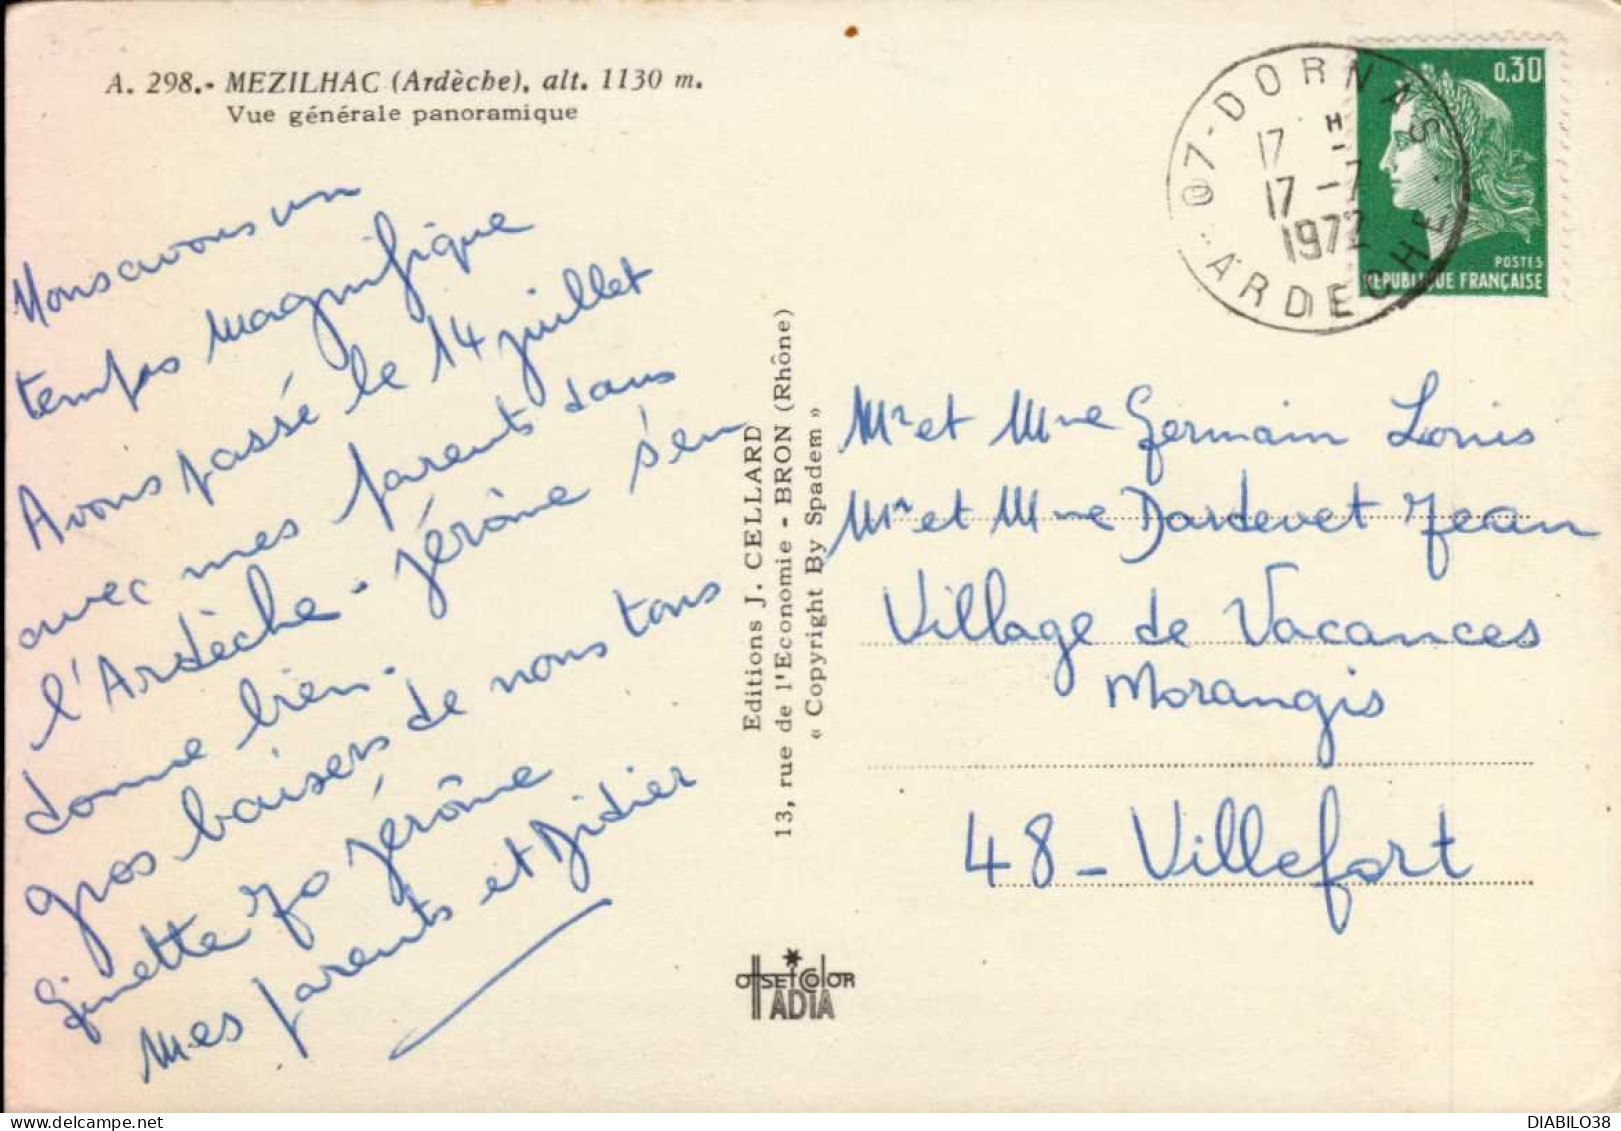 A. 298.- MEZILHAC (Ardèche), alt. 1130 m.
Vue générale panoramique
Nous avons un
temps magnifique
Avons passé le 14 juillet
avec mes parents dans
l'Ardèche - Jérôme s'en
donne bien.
gros baisers de nous tous
Ginette Jo Jérôme
mes parents et Didier
Editions J. CELLARD
13, rue de l'Economie - BRON (Rhône)
« Copyright By Spadem »
OFFSET COLOR
IADIA
07-DORNAS
17 H
17-7
1972
ARDECHE
0,30
POSTES
REPUBLIQUE FRANÇAISE
Mr et Mme Germain Louis
Mr et Mme Dardevet Jean
Village de Vacances
Morangis
48 - Villefort
DIABILO38